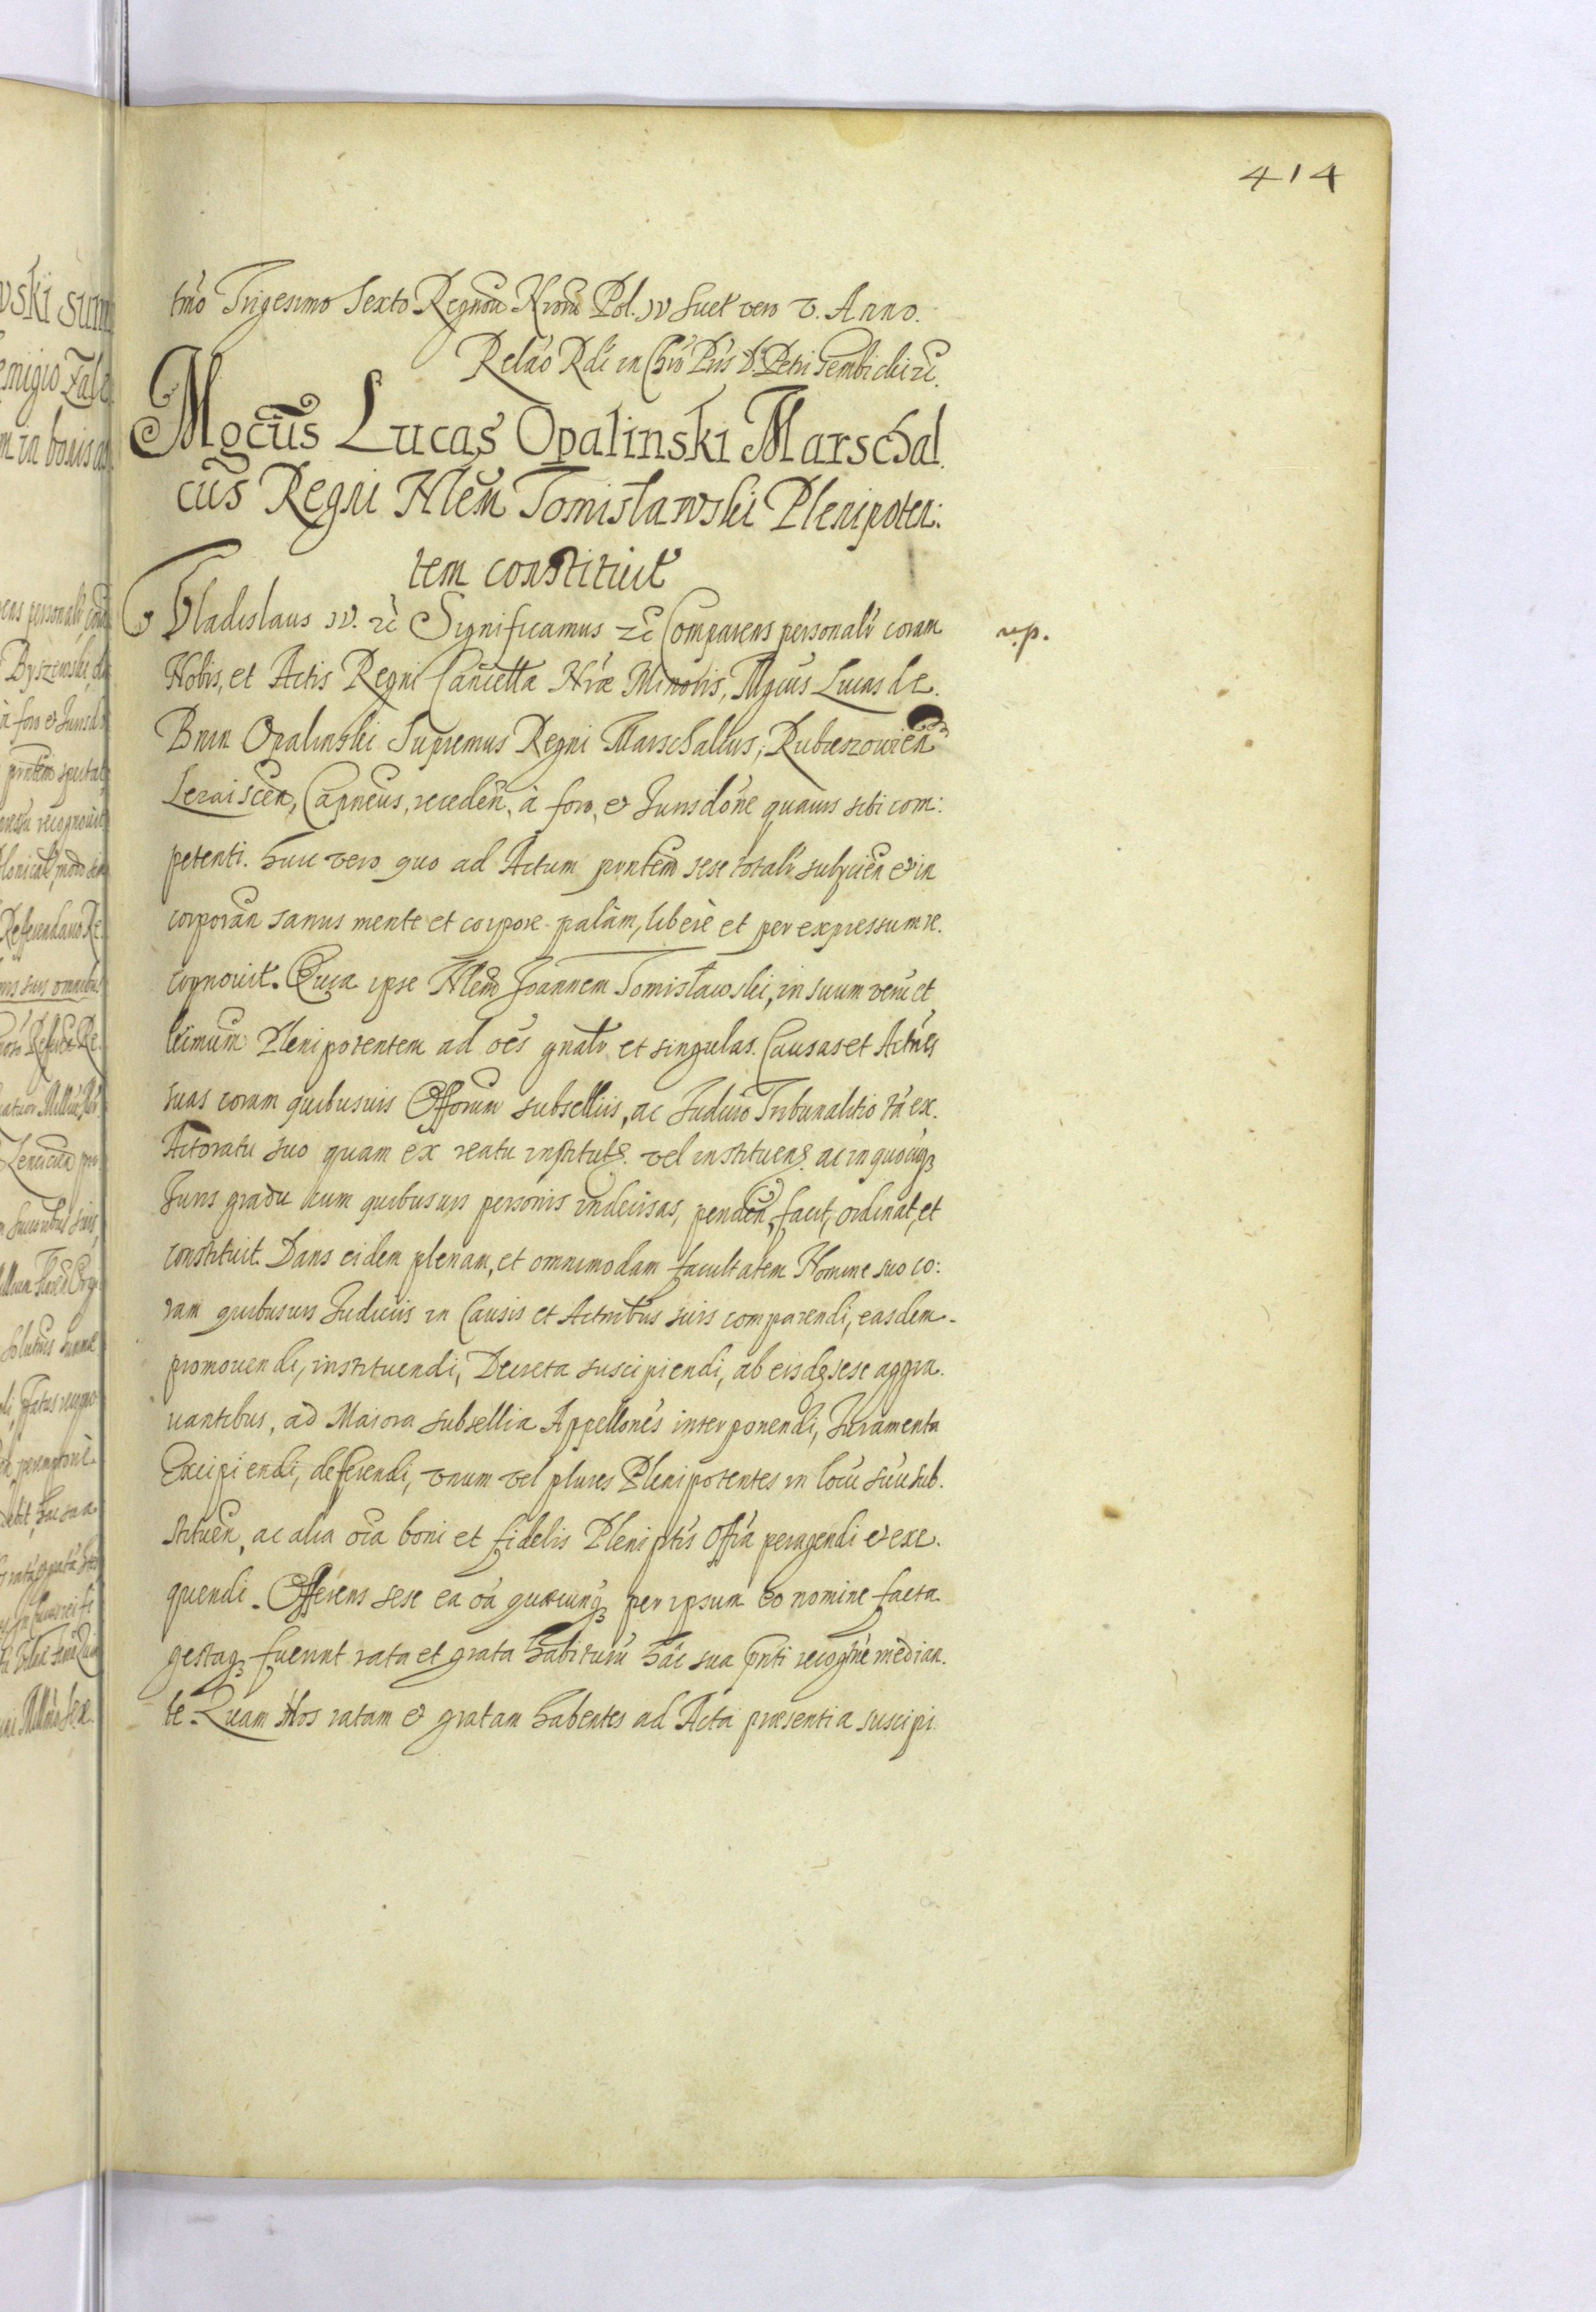 414
tmo Trigesimo Sexto Regnorũ Nrorũ Pol. IV Suet vero V. Anno.
Relao Rdi in Chro Pris D. Petri Gembicki zc.
Mgcũs Lucas Opalinski Marschal
cũs Regni Nlem Tomisławski Plenipoten:
tem constituit
Vladislaus IV. zc Significamus zc Comparens personalr coram
n.p.
Nobis, et Actis Regni Cancella Nræ Minoris, Mgcus Lucas de
Bnin Opalinski Supremus Regni Marschallus, Rubieszowien
Lezaiscen, Capneus, receden, à foro, et Jurisdone quauis sibi com:
petenti. huic vero quo ad Actum pnntem sese totalr subijcien et in
corporan sanus mente et corpore palàm, liberè et per expressum re.
cognouit. Quia ipse Nlem Joannem Tomisławski, in suum verũ et
ltimum Plenipotentem ad oẽs gnalr et singulas Causas et Actnes
suas coram quibusuis Offorum subselliis, ac Judicio Tribunalitio tã ex.
Actoratu suo quam ex reatu institut. vel instituen. ac in quocuqz
Juris gradu cum quibusuis personis indecisas, penden, facit, ordinat, et
constituit. Dans eidem plenam, et omnimodam facultatem Nomine suo co:
ram quibusuis Judicijs in Causis et Actnibus suis comparendi, easdem
promouendi, instituendi, Decreta suscipiendi, ab eisdẽ sese aggra.
uantibus, ad Maiora subsellia Appellones interponendi, Juramenta
Excipiendi, deferendi, vnum vel plures Plenipotentes in locũ suũ sub.
stituen, ac alia oĩa boni et fidelis Pleniptis Offia peragendi et exe.
quendi. Offerens sese ea oĩa quæcunqz per ipsum eo nomine facta
gestaqz fuerint rata et grata habiturũ hãc sua pnti recogne median.
te. Quam Nos ratam et gratam habentes ad Acta præsentia suscipi